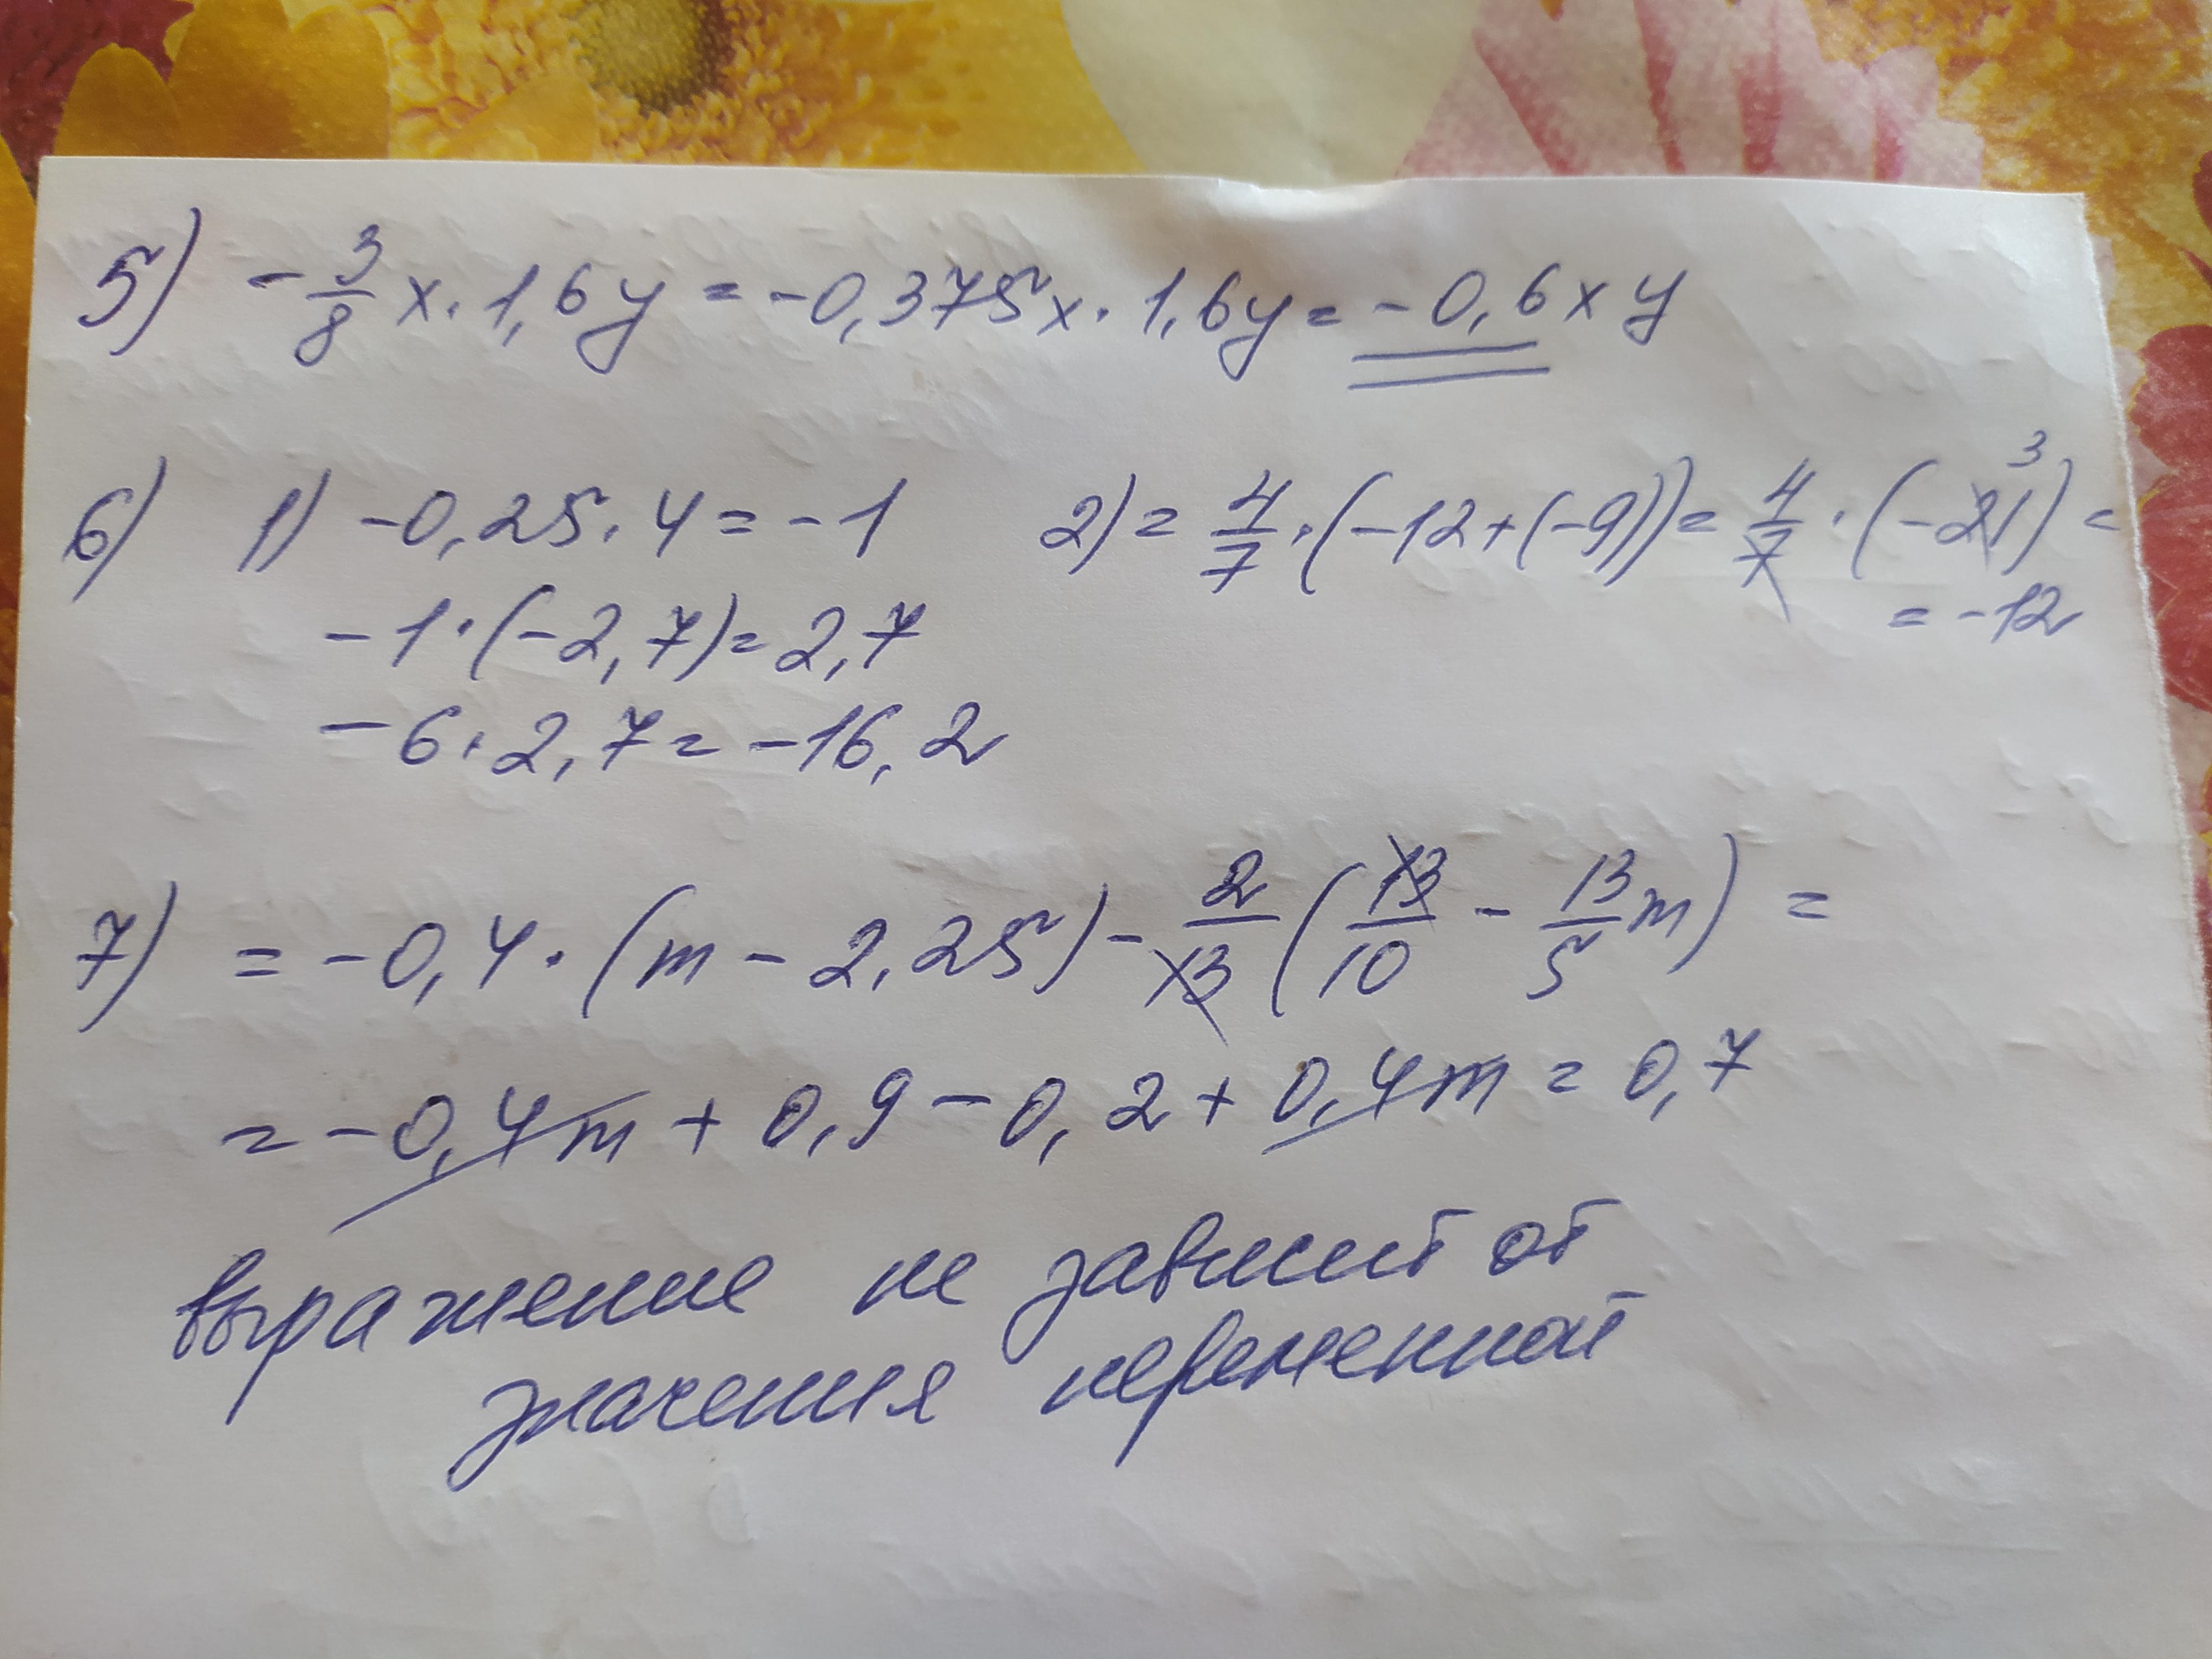 5) -3/8 x · 1,6y = -0,375x · 1,6y = -0,6xy
6) 1) -0,25 · 4 = -1 2) = 4/7 · (-12 + (-9)) = 4/7 · (-21) 3 =
= -12
-1 · (-2,7) = 2,7
-6 · 2,7 = -16,2
7) = -0,4 · (m - 2,25) - 2/13 (13/10 - 13/5 m) =
= -0,4m + 0,9 - 0,2 + 0,4m = 0,7
выражение не зависит от
значения переменной